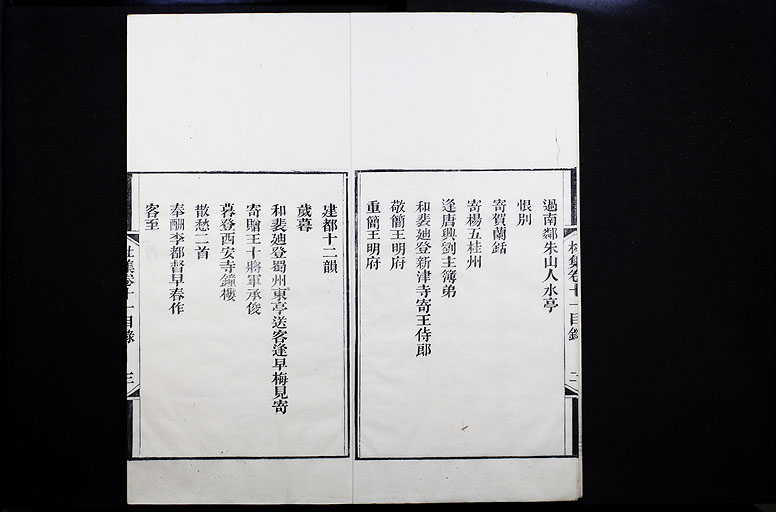 杜集卷十一目錄 二
過南鄰朱山人水亭
恨別
寄賀蘭銛
寄楊五桂州
逢唐興劉主簿弟
和裴廸登新津寺寄王侍郎
敬簡王明府
重簡王明府
建都十二韻
歲暮
和裴廸登蜀州東亭送客逢早梅見寄
寄贈王十將軍承俊
暮登西安寺鐘樓
散愁二首
奉酬李都督早春作
客至
杜集卷十一目錄 三